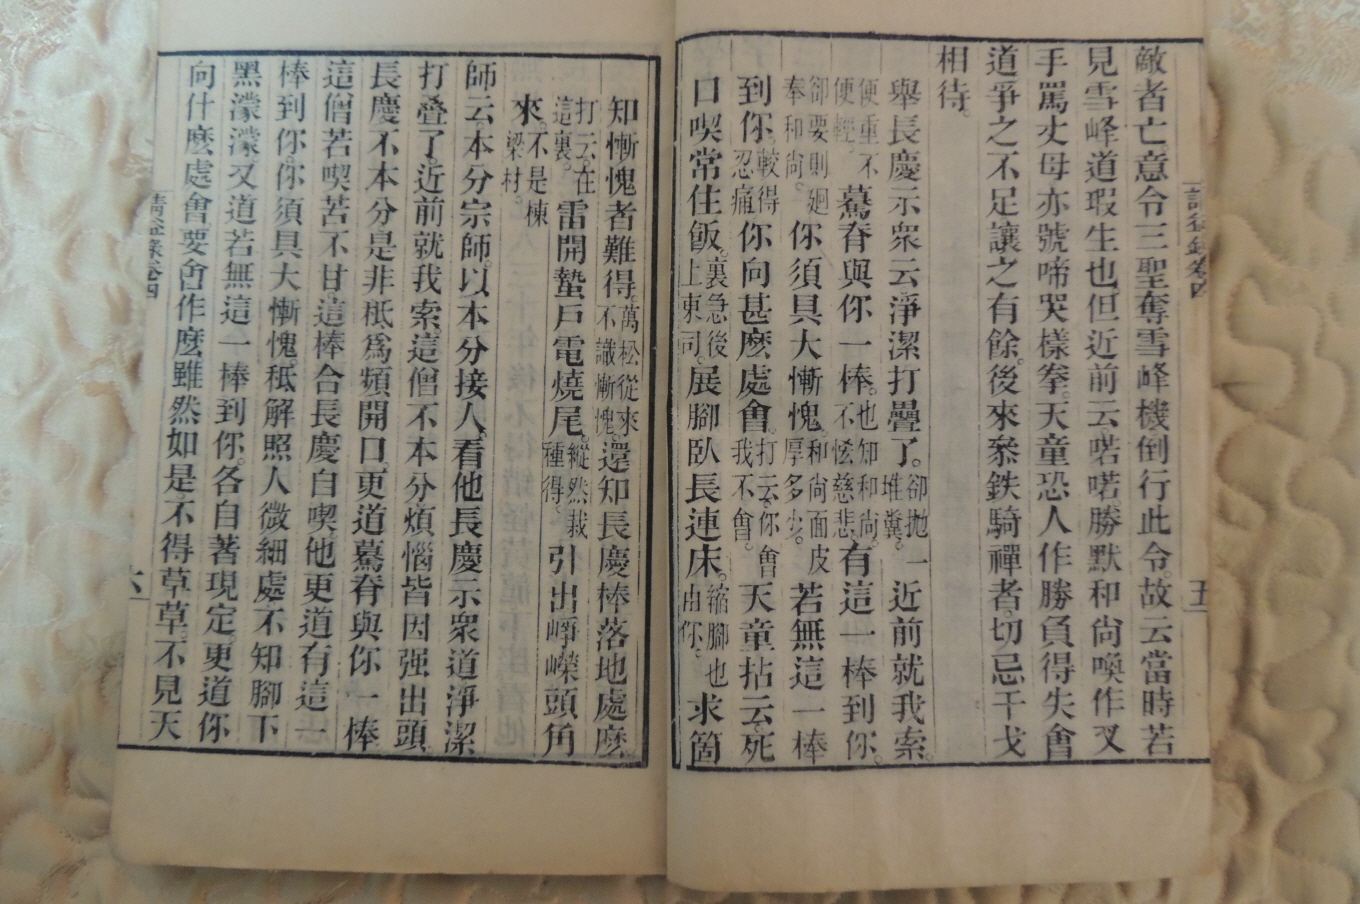 請益錄卷四 五
敵者亡。意令三聖奪雪峰機倒行此令。故云當時若
見雪峰道瑕生也但近前云喏喏勝默和尚喚作叉
手罵丈母亦號啼哭樣拳。天童恐人作勝負得失會
道爭之不足讓之有餘。後來叅鉄騎禪者切忌干戈
相待。
舉長慶示衆云淨潔打疊了。卻拋一堆糞。近前就我索。
便重不便輕。驀脊與你一棒。也知和尚不恡慈悲。有這一棒到你。
卻要則廻奉和尚。你須具大慚愧。和尚面皮厚多少。若無這一棒
到你。較得忍痛你向甚麽處會。打云你會我不會。天童拈云死
口喫常住飯。裏急後上東司。展腳臥長連床。縮腳也由你。求箇
知慚愧者難得。萬松從來不識慚愧。還知長慶棒落地處麽
打云在這裏。雷開蟄戶電燒尾。縱然栽種得。引出崢嶸頭角
來。不是棟梁材。
師云本分宗師。以本分接人。看他長慶示衆道淨潔
打叠了。近前就我索這僧不本分煩惱皆因强出頭
長慶不本分是非秪爲頻開口。更道驀脊與你一棒
這僧若喫苦不甘這棒合長慶自喫他更道有這一
棒到你。你須具大慚愧。秪解照人微細處不知腳下
黑濛濛又道若無這一棒到你。各自著現定更道你
向什麽處會。要會作麽雖然如是不得草草。不見天
請益錄卷四 六